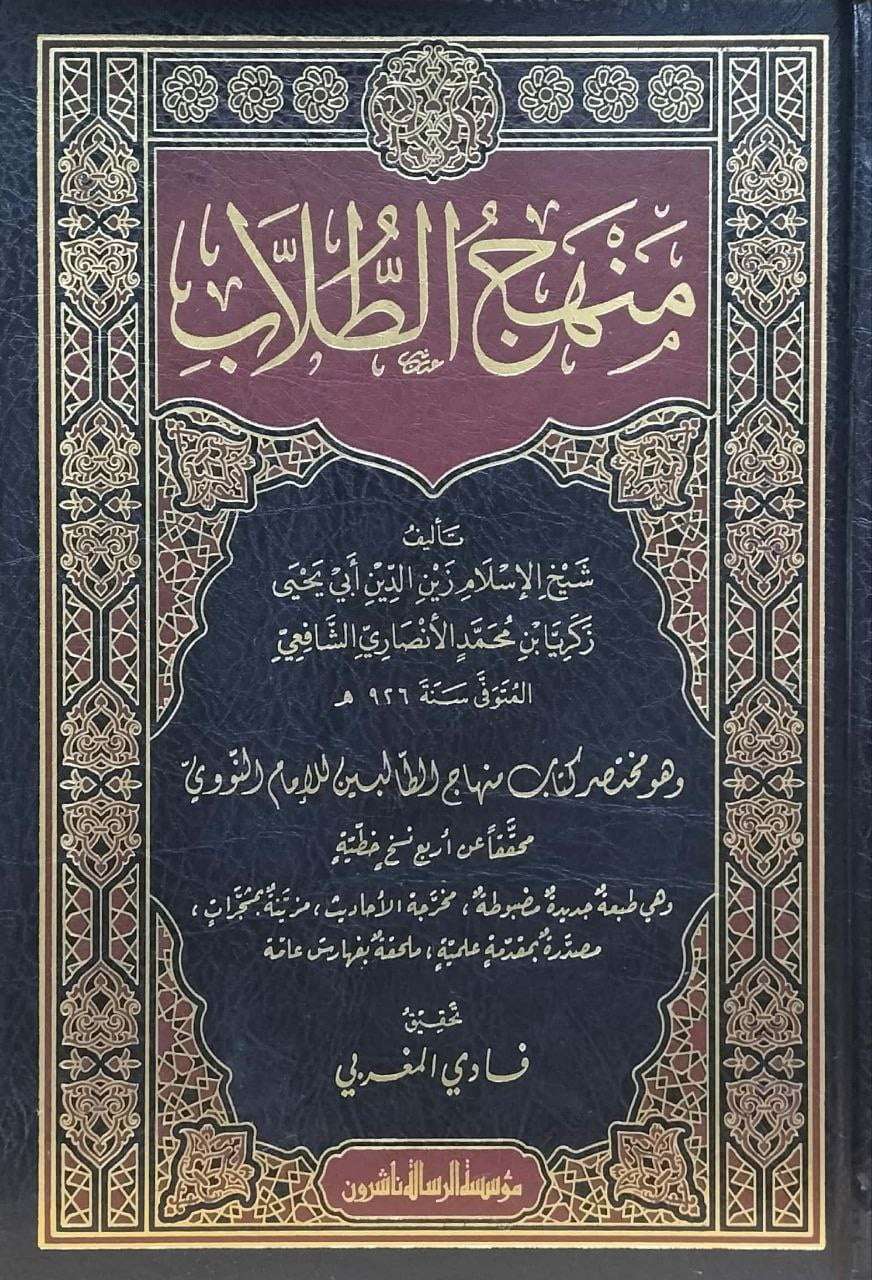 مَنْهَجُ الطُّلَّابِ
تَأليفُ
شَيْخِ الإِسْلَامِ زَيْنِ الدِّيْنِ أَبِيْ يَحْيَى
زَكَرِيَّا بْنِ مُحَمَّدٍ الأَنْصَارِيِّ الشَّافِعِيِّ
المُتَوَفَّى سَنَةَ ٩٢٦ هـ
وهو مختصر كتاب منهاج الطّالبين للإمام النّوويّ
محقَّقاً عن أربع نسخٍ خطّيّةٍ
وهي طبعةٌ جديدةٌ مضبوطةٌ، مخرّجة الأحاديث، مزيّنةٌ بمشجّراتٍ،
مصدّرةٌ بمقدّمةٍ علميّةٍ، ملحقةٌ بفهارس عامّة
تَحْقِيْقُ
فادي المغربي
مؤسسة الرسالة ناشرون